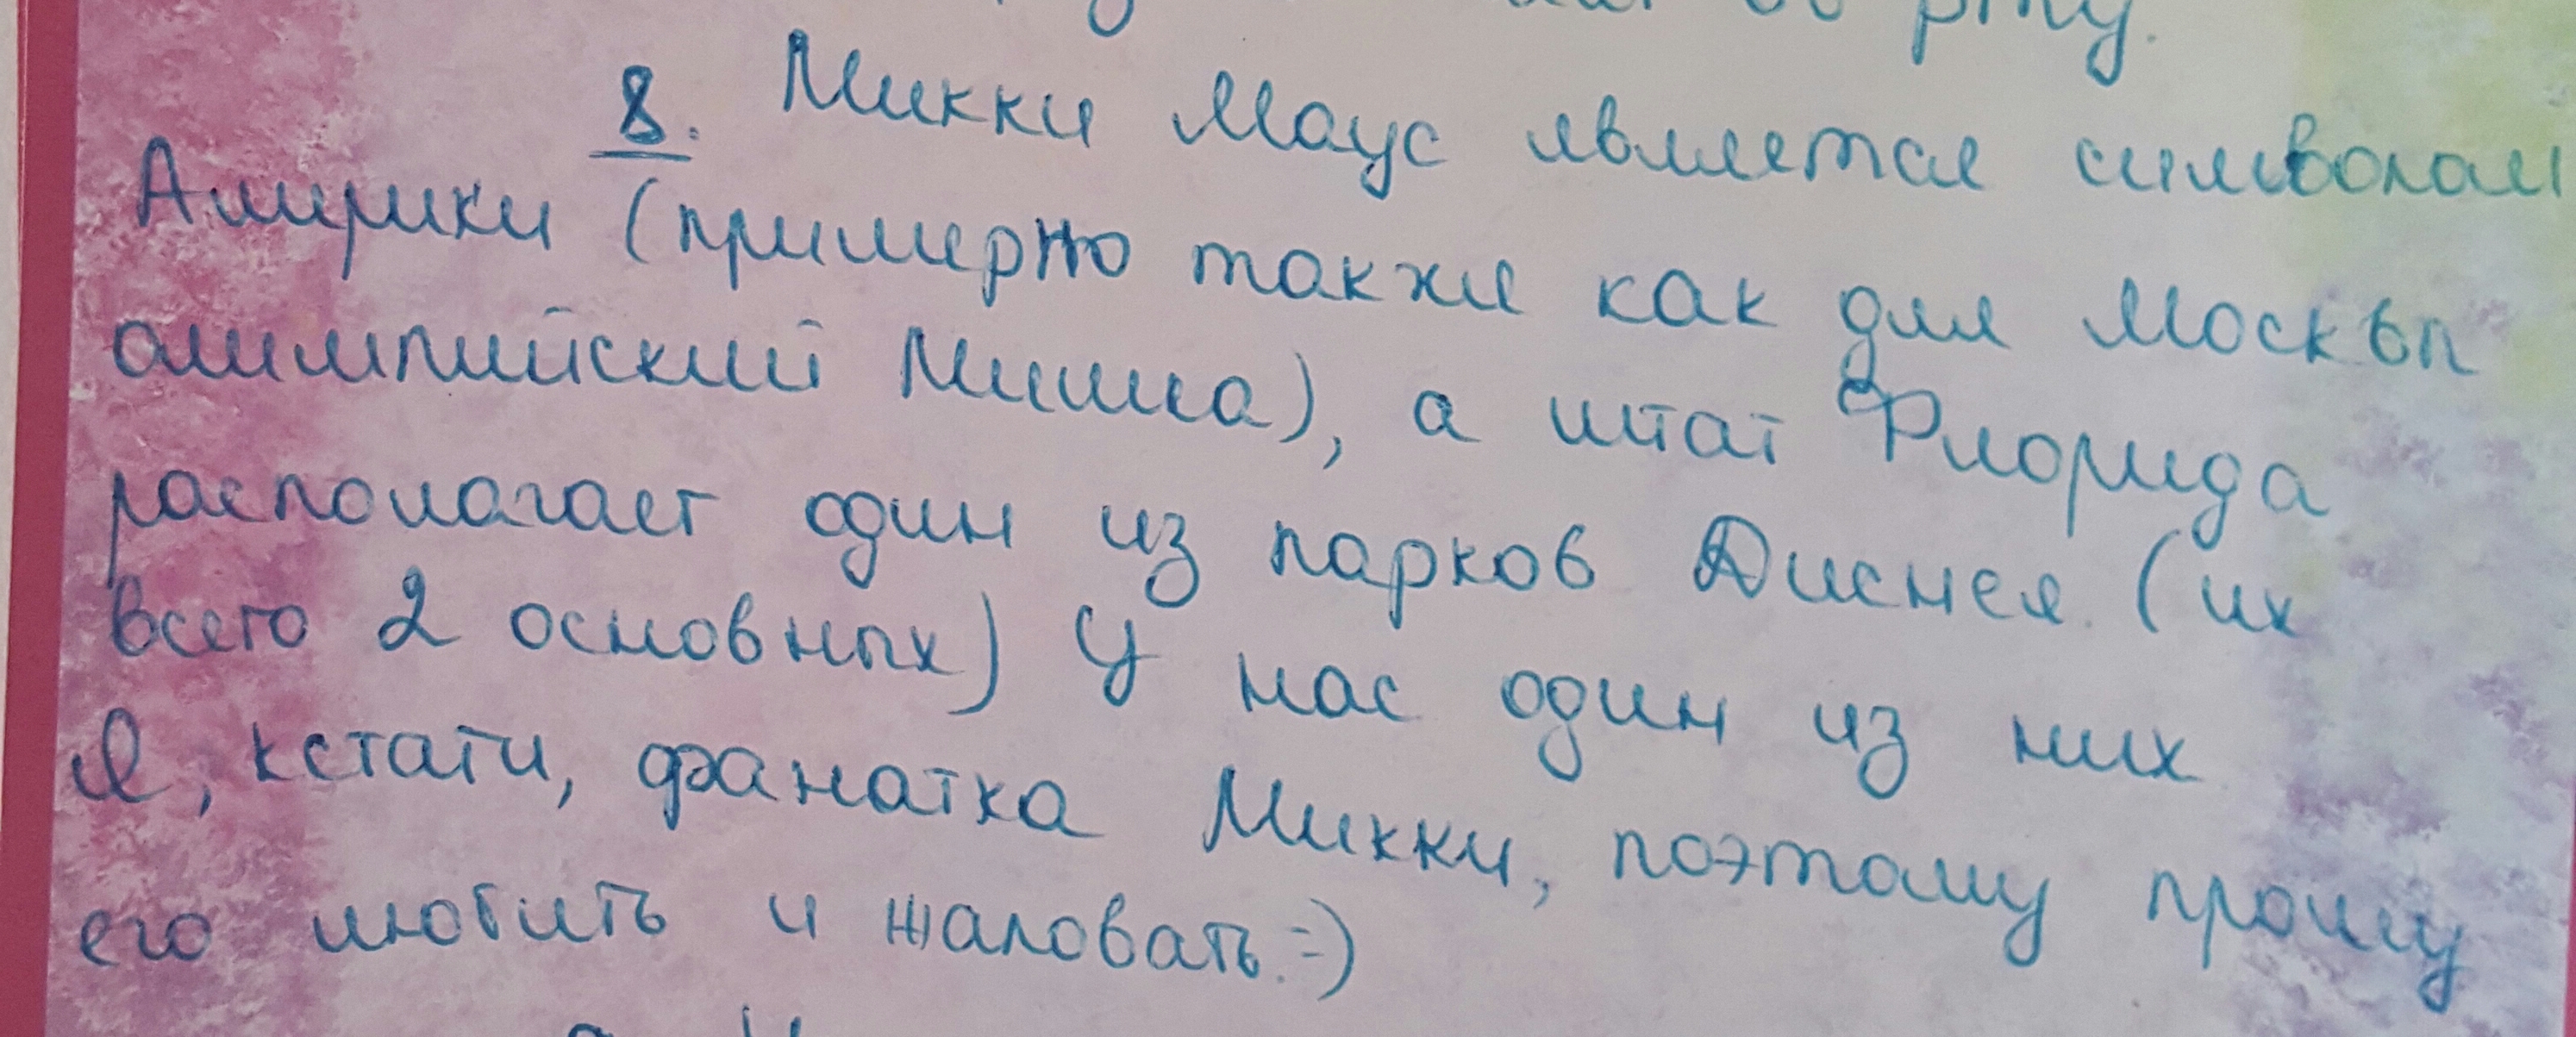 рту.
8. Микки Маус является символом
Америки (примерно также как для Москвы
олимпийский Мишка), а штат Флорида
располагает один из парков Диснея (их
всего 2 основных) У нас один из них
Я, кстати, фанатка Микки, поэтому прошу
его любить и жаловать :-)